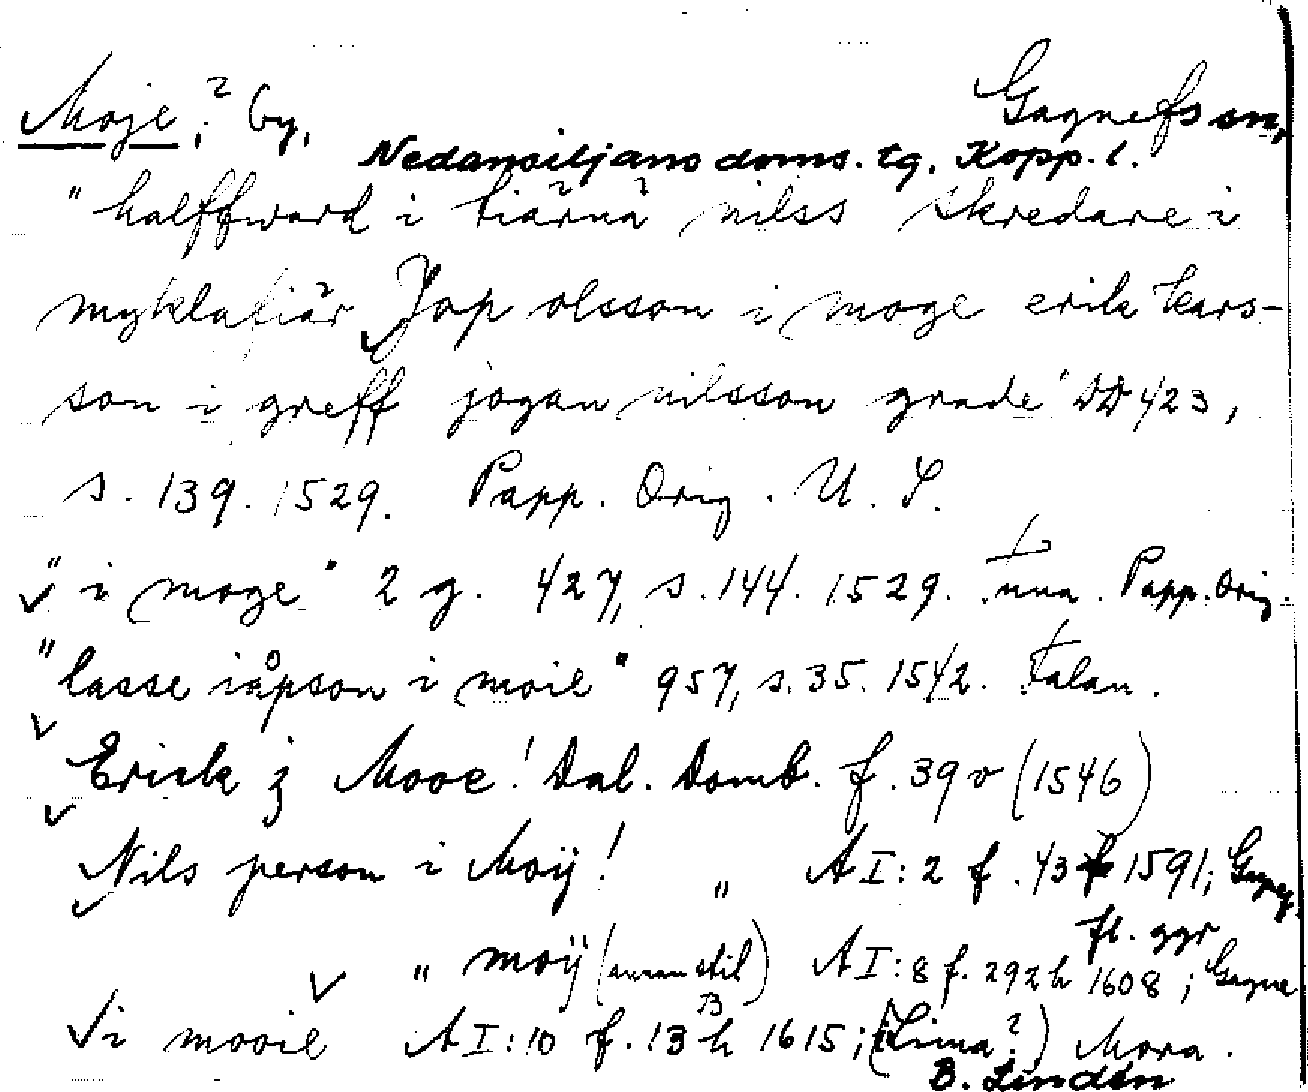 Moje, ? by, Gagnefs sn,
Nedansiljans doms. tg. Kopp. l.
"halffward i tiärnä nilss skredare i
myklafiär Jop olsson i moge erik lars-
son i greff jogan nilsson grade" DD 423,
s. 139. 1529. Papp. Orig. U. S.
"i moge" 2 g. 427, s. 144. 1529. Tuna. Papp. Orig.
"lasse iåpson i moie" 957, s. 35. 1542. Falan.
Erick j Mooe! Dal. Domb. f. 39 v (1546)
Nils person i Moÿ! " A I: 2 f. 43 1591; Gagnef
fl. ggr
" moÿ (annan stil) A I: 8 f. 292 h 1608; Gagne
i mooie A I: 10 f. 13 h 1615; (Lima?) Mora.
B. Lindén